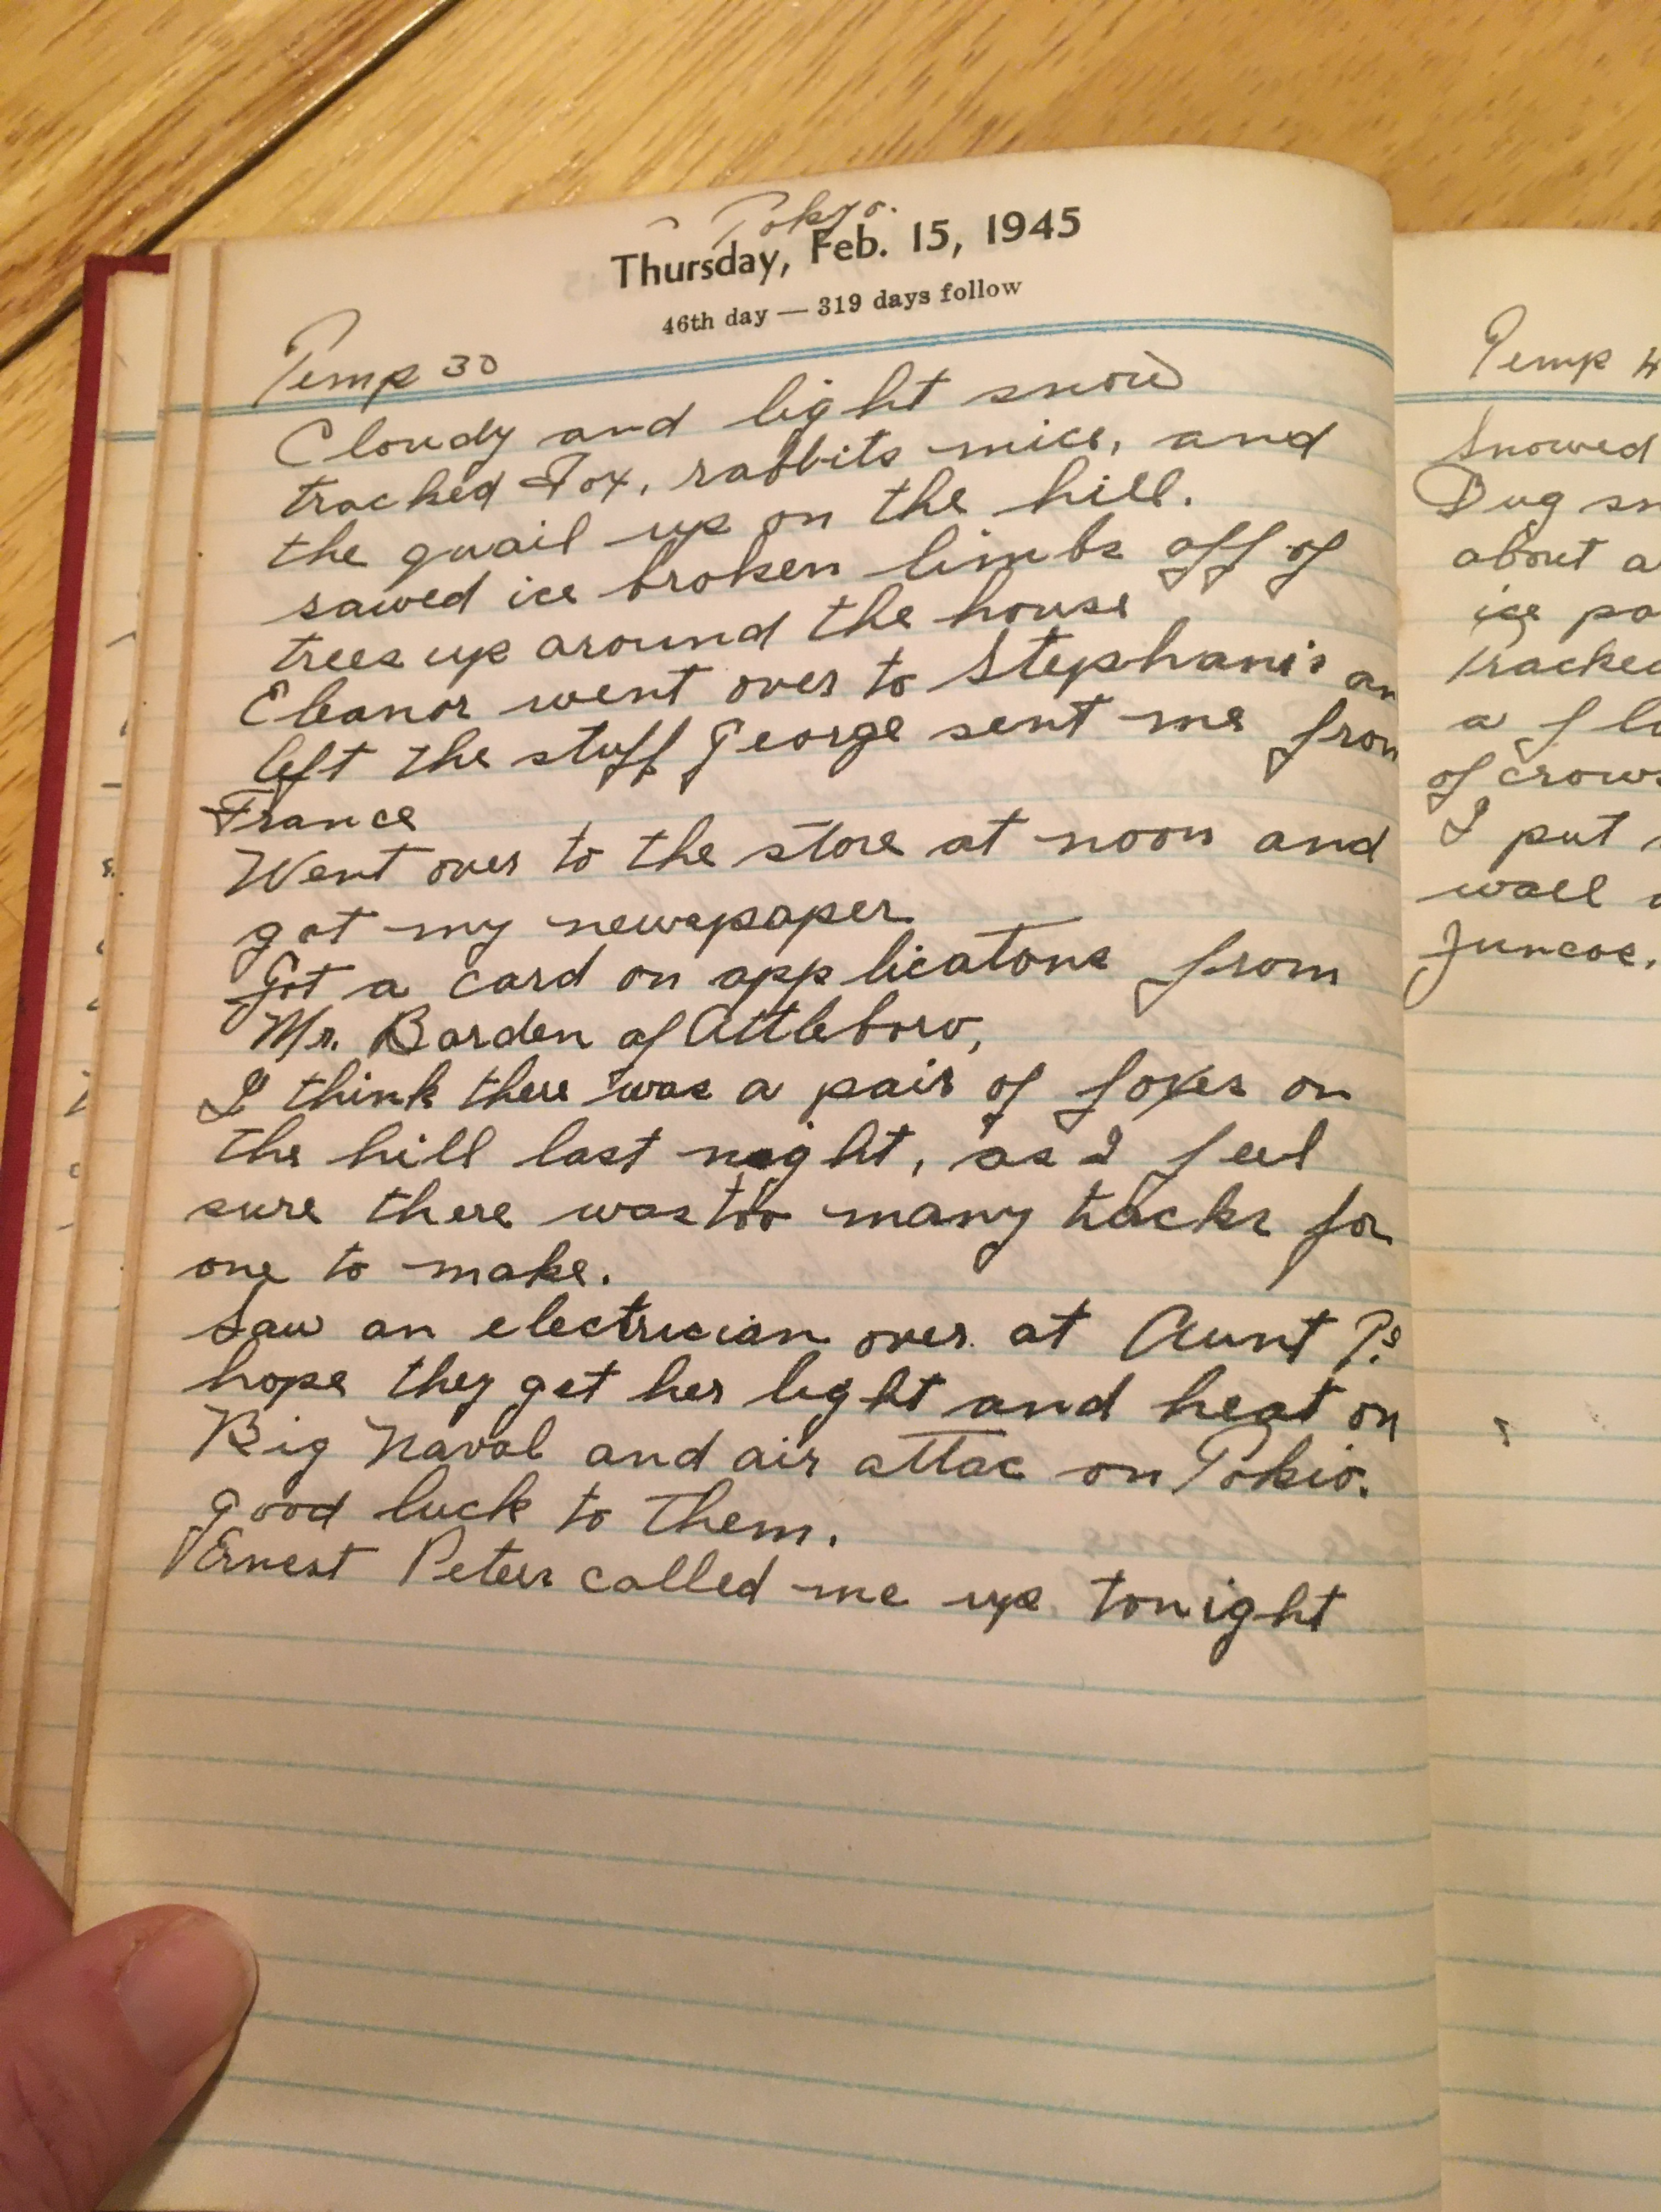 Tokyo.
Thursday, Feb. 15, 1945
46th day — 319 days follow
Temp 30
Cloudy and light snow
tracked Fox, rabbits mice, and
the quail up on the hill.
sawed ice broken limbs off of
trees up around the house
Eleanor went over to Stephani's an
left the stuff George sent me from
France
Went over to the store at noon and
got my newspaper
Got a card on applicatons from
Mr. Barden of Attleboro,
I think there was a pair of foxes on
the hill last night, as I feel
sure there was too many tracks for
one to make.
Saw an electrician over at Aunt P's
hope they get her light and heat on
Big Naval and air attac on Tokio.
good luck to them.
Ernest Peters called me up tonight
Temp
Snowed
Dug sn
about a
ice pa
tracked
a flo
of crows
I put
wall
Juncos.